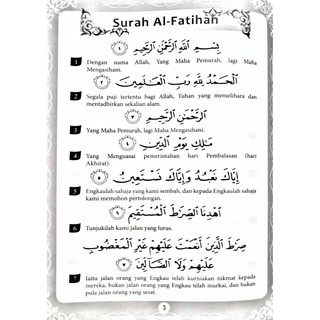 Surah Al-Fatihah
بِسْمِ اللَّهِ الرَّحْمَٰنِ الرَّحِيمِ ١
1 Dengan nama Allah, Yang Maha Pemurah, lagi Maha
Mengasihani.
الْحَمْدُ لِلَّهِ رَبِّ الْعَالَمِينَ ٢
2 Segala puji tertentu bagi Allah, Tuhan yang memelihara dan
mentadbirkan sekalian alam.
الرَّحْمَٰنِ الرَّحِيمِ ٣
3 Yang Maha Pemurah, lagi Maha Mengasihani.
مَالِكِ يَوْمِ الدِّينِ ٤
4 Yang Menguasai pemerintahan hari Pembalasan (hari
Akhirat).
إِيَّاكَ نَعْبُدُ وَإِيَّاكَ نَسْتَعِينُ ٥
5 Engkaulah sahaja yang kami sembah, dan kepada Engkaulah sahaja
kami memohon pertolongan.
اهْدِنَا الصِّرَاطَ الْمُسْتَقِيمَ ٦
6 Tunjukilah kami jalan yang lurus.
صِرَاطَ الَّذِينَ أَنْعَمْتَ عَلَيْهِمْ غَيْرِ الْمَغْضُوبِ
عَلَيْهِمْ وَلَا الضَّالِّينَ ٧
7 Iaitu jalan orang-orang yang Engkau telah kurniakan nikmat kepada
mereka, bukan jalan orang yang Engkau telah murkai, dan bukan
pula jalan orang yang sesat.
3